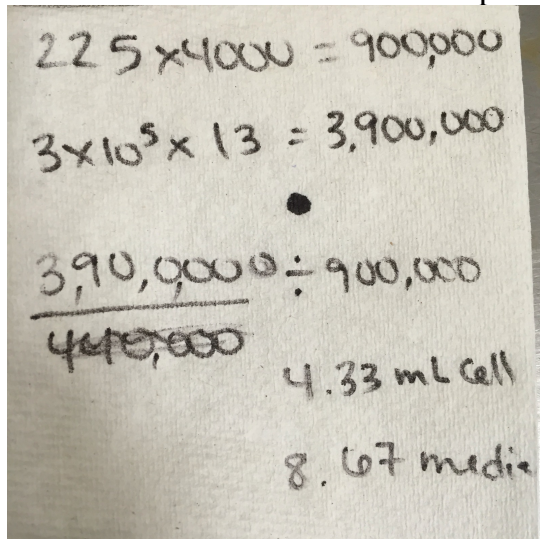 225 x 4000 = 900,000
3x10⁵ x 13 = 3,900,000
3,90,0,000 ÷ 900,000
440,000
4.33 mL Cell
8.67 media